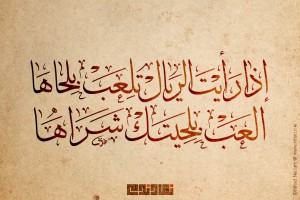 إذا رأيت الريال تلعب بلحاها
العب بلحيتك شراها